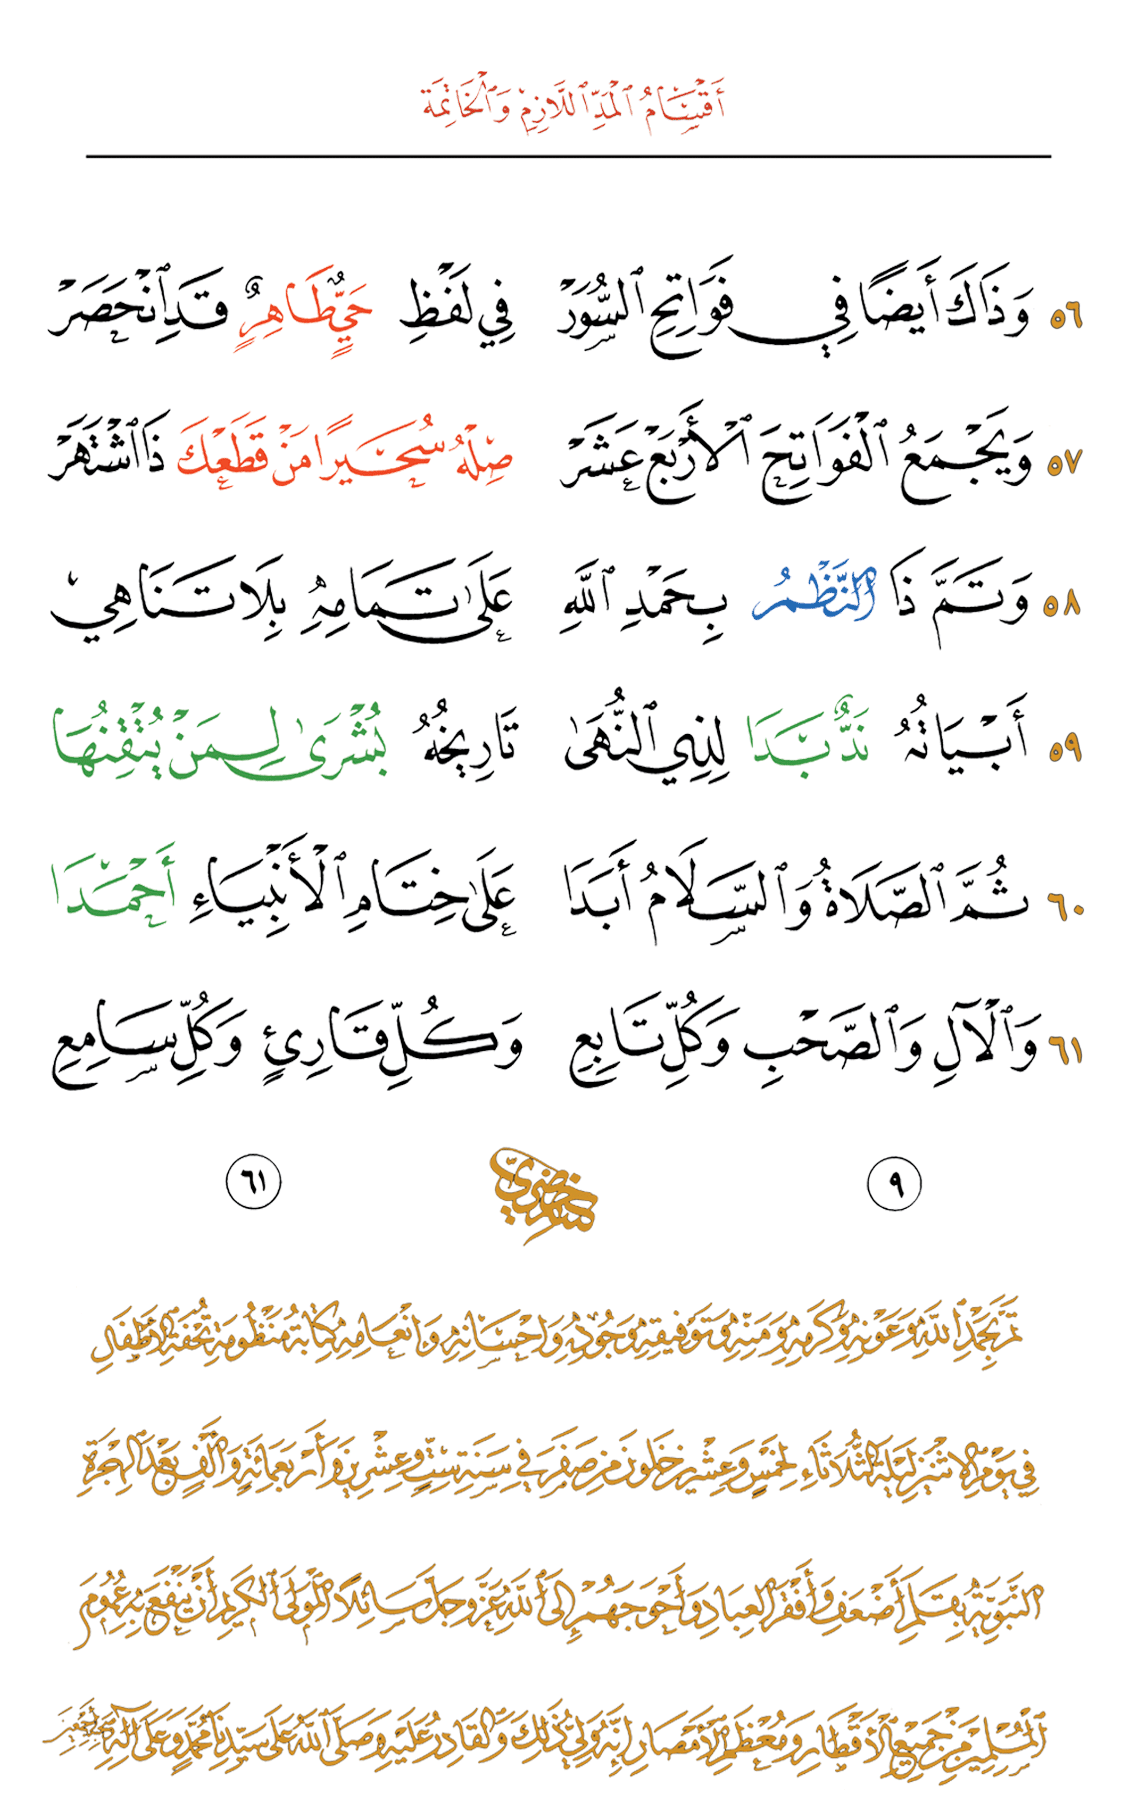 أَقْسَامُ ٱلْمَدِّ ٱللَّازِمِ وَٱلْخَاتِمَة
٥٦ وَذَاكَ أَيضًا فِي فَوَاتِحِ ٱلسُّوَرْ فِي لَفْظِ حَيٍّ طَاهِرٍ قَدِ ٱنْحَصَرْ
٥٧ وَيَجْمَعُ ٱلْفَوَاتِحَ ٱلْأَرْبَعْ عَشَرْ صِلْهُ سُحَيرًا مَنْ قَطَعْكَ ذَا ٱشْتَهَرْ
٥٨ وَتَمَّ ذَا ٱلنَّظْمُ بِحَمْدِ ٱللَّهِ عَلَىٰ تَمَامِهِ بِلَا تَنَاهِي
٥٩ أَبْيَاتُهُ نَدٌّ بَدَا لِذِي ٱلنُّهَىٰ تَارِيخُهُ بُشْرَىٰ لِمَنْ يُتْقِنُهَا
٦٠ ثُمَّ ٱلصَّلَاةُ وَٱلسَّلَامُ أَبَدَا عَلَىٰ خِتَامِ ٱلْأَنْبِيَاءِ أَحْمَدَا
٦١ وَٱلْآلِ وَٱلصَّحْبِ وَكُلِّ تَابِعِ وَكُلِّ قَارِئٍ وَكُلِّ سَامِعِ
٩ ٦١
تَمَّ بِحَمْدِ ٱللَّهِ وَعَوْنِهِ وَكَرَمِهِ وَمَنِّهِ وَتَوْفِيقِهِ وَجُودِهِ وَإِحْسَانِهِ وَإِنْعَامِهِ كِتَابَةُ مَنْظُومَةِ تُحْفَةِ ٱلْأَطْفَالِ
فِي يَوْمِ ٱلِاثْنَيْنِ لَيْلَةَ ٱلثُّلَاثَاءِ لِخَمْسٍ وَعِشْرِينَ خَلَوْنَ مِنْ صَفَرَ فِي سَنَةِ سِتٍّ وَعِشْرِينَ وَأَرْبَعِمِائَةٍ وَأَلْفٍ بَعْدَ ٱلْهِجْرَةِ
ٱلنَّبَوِيَّةِ بِقَلَمِ أَضْعَفِ وَأَفْقَرِ ٱلْعِبَادِ وَأَحْوَجِهِمْ إِلَى ٱللَّهِ عَزَّ وَجَلَّ سَائِلًا ٱلْمَوْلَى ٱلْكَرِيمَ أَنْ يَنْفَعَ بِهِ عُمُومَ
ٱلْمُسْلِمِينَ مِنْ جَمِيعِ ٱلْأَقْطَارِ وَمُعْظَمِ ٱلْأَمْصَارِ إِنَّهُ وَلِيُّ ذَٰلِكَ وَٱلْقَادِرُ عَلَيْهِ وَصَلَّى ٱللَّهُ عَلَى سَيِّدِنَا مُحَمَّدٍ وَعَلَى آلِهِ أَجْمَعِينَ